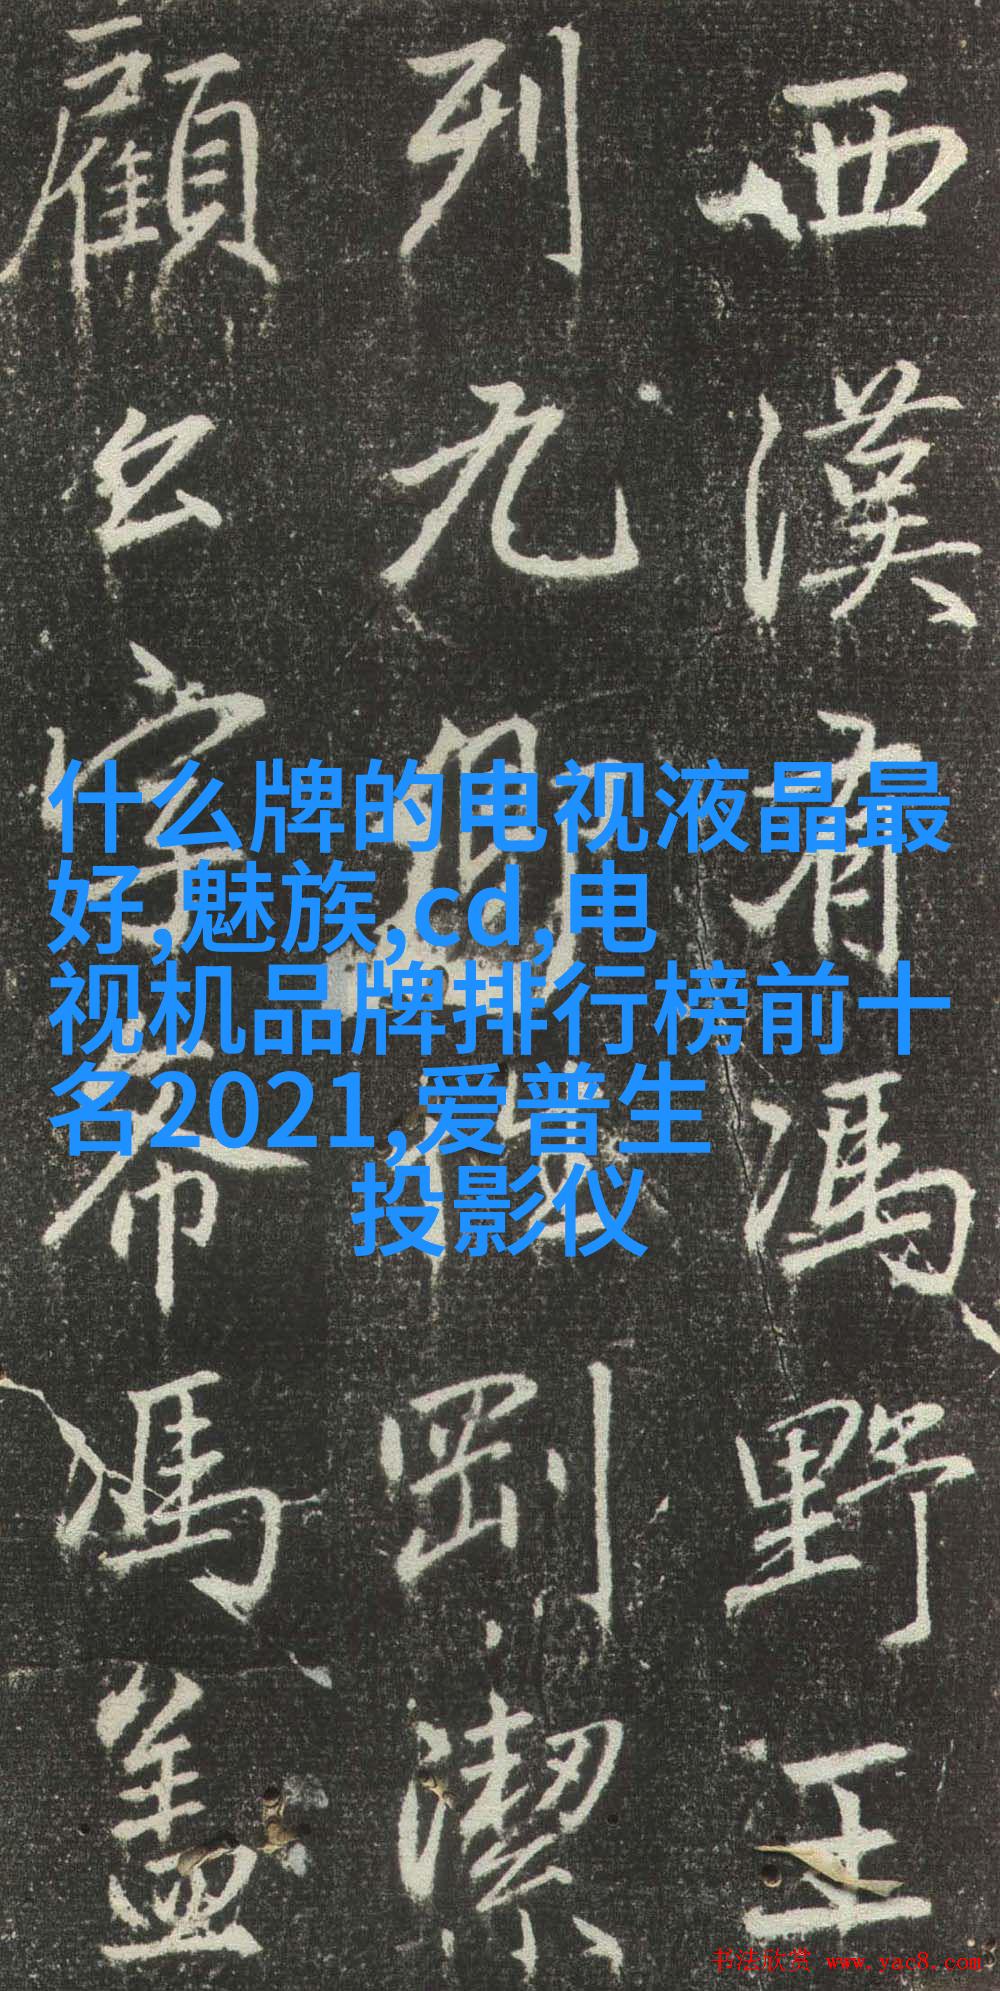 西漢有馮野王
列九卿
剛潔
顧公字希馮盖
什么牌的电视液晶最
好,魅族,cd,电
视机品牌排行榜前十
名2021,爱普生
投影仪
书法欣赏 www.yac8.com